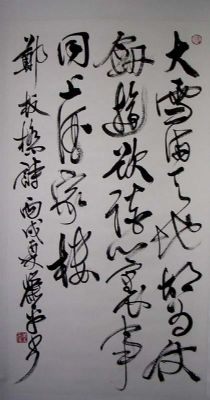 大雪滿天地胡為仗
劍遊欲談心裏事
同上酒家樓
鄭板橋詩丙戌夏書